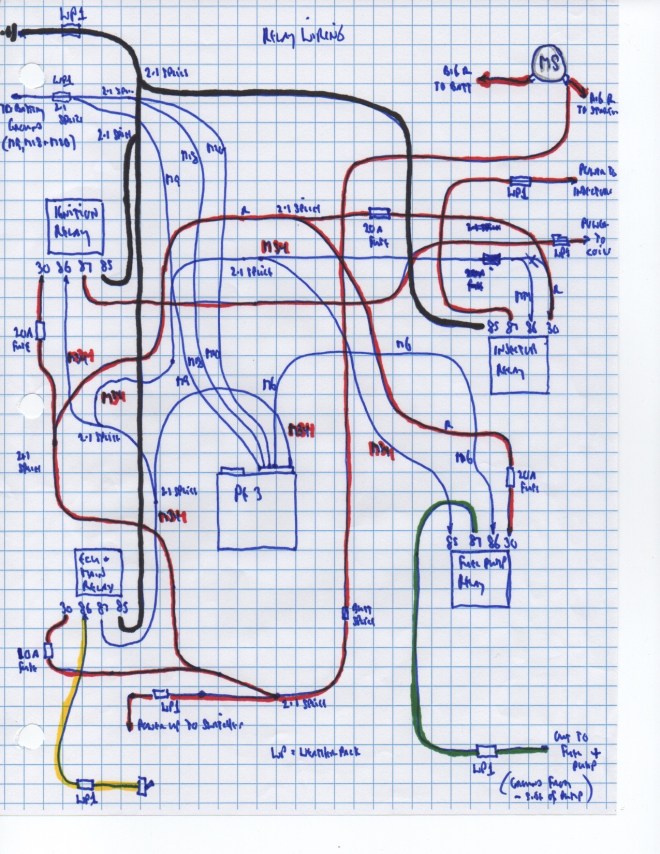 WP1
RELAY WIRING
MS
BIG R
TO BATT
BIG R
2-1 SPLICE
WP1
TO BATTERY
GROUNDS
2-1
SPLICE
2-1 SPLICE
M9
M13
M20
POWER TO
INJECTORS
WP1
IGNITION
RELAY
30 86 87 85
R
2-1 SPLICE
20A
FUSE
POWER
TO
COILS
WP1
M34
2-1 SPLICE
20A
FUSE
R
85 87 86 30
INJECTOR
RELAY
20A
FUSE
M34
M34
M9
M6
M6
M34
M34
R
M6
20A
FUSE
2-1 SPLICE
2-1
SPLICE
2-1 SPLICE
M34
PE3
85 87 86 30
FUEL PUMP
RELAY
ECU +
MAIN
RELAY
30 86 87 85
20A
FUSE
SPLICE
WP1
2-1 SPLICE
WP = WEATHER PACK
WP1
WP1
OUT TO
FUSE +
PUMP
(GROUND FROM
- SIDE OF PUMP)